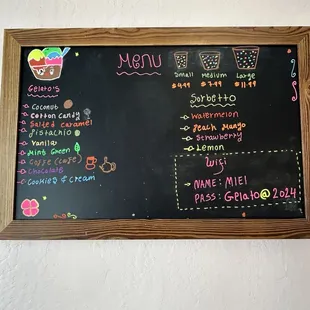 MENU
Small Medium Large
$4.99 $7.99 $11.99
Gelato's
Coconut
Cotton Candy
Salted caramel
Pistachio
Vanilla
Mint Green
Coffe (cafe)
Chocolate
Cookies & Cream
Sorbetto
Watermelon
Peach Mango
Strawberry
Lemon
Wifi
NAME: MIEI
PASS: Gelato@2024